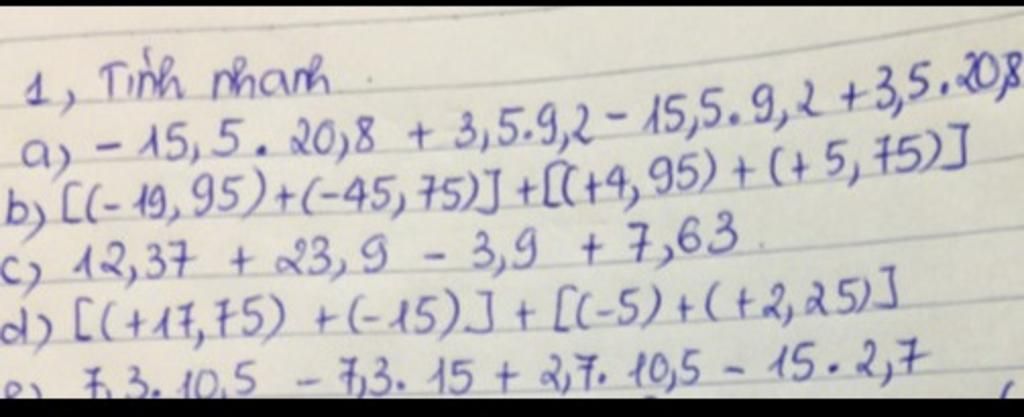 1, Tính nhanh
a) - 15,5 . 20,8 + 3,5.9,2 - 15,5. 9,2 + 3,5.20,8
b) [(- 19,95) + (-45,75)] + [(+4,95) + (+ 5,75)]
c) 12,37 + 23,9 - 3,9 + 7,63
d) [(+17,75) + (-15)] + [(-5) + (+2,25)]
e) 7,3. 10,5 - 7,3. 15 + 2,7. 10,5 - 15. 2,7